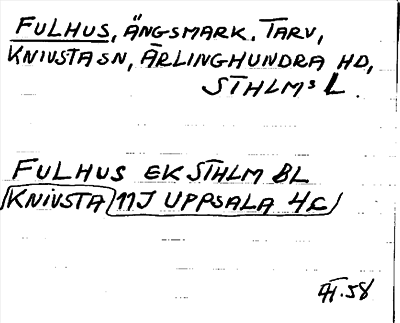 FULHUS, ÄNGSMARK. TARV,
KNIVSTA SN, ÄRLINGHUNDRA HD,
STHLMS L.
FULHUS EK STHLM BL
KNIVSTA 11J UPPSALA 4C
.58